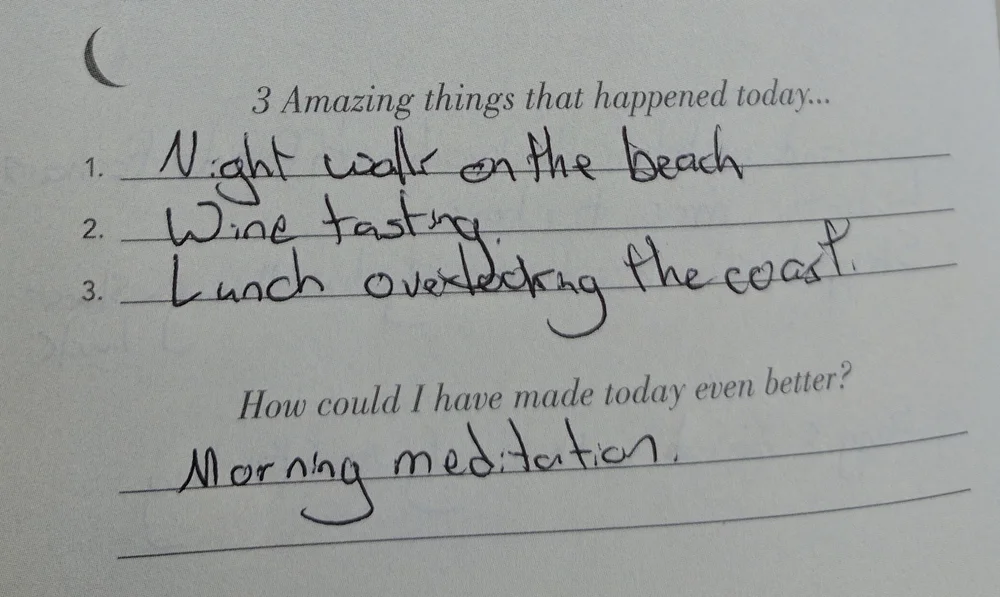 3 Amazing things that happened today...
1. Night walk on the beach
2. Wine tasting.
3. Lunch overlooking the coast.
How could I have made today even better?
Morning meditation.